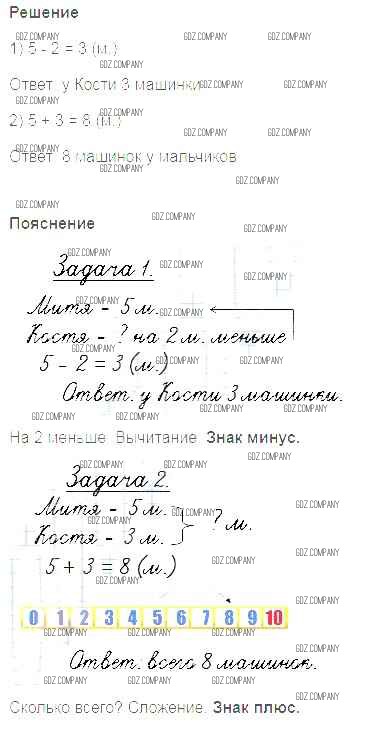 Решение
1) 5 - 2 = 3 (м.)
Ответ: у Кости 3 машинки
2) 5 + 3 = 8 (м.)
Ответ: 8 машинок у мальчиков
Пояснение
Задача 1.
Митя - 5 м.
Костя - ? на 2 м. меньше
5 - 2 = 3 (м.)
Ответ: у Кости 3 машинки.
На 2 меньше. Вычитание. Знак минус.
Задача 2.
Митя - 5 м.
Костя - 3 м. ? м.
5 + 3 = 8 (м.)
0 1 2 3 4 5 6 7 8 9 10
Ответ: всего 8 машинок.
Сколько всего? Сложение. Знак плюс.
GDZ.COMPANY